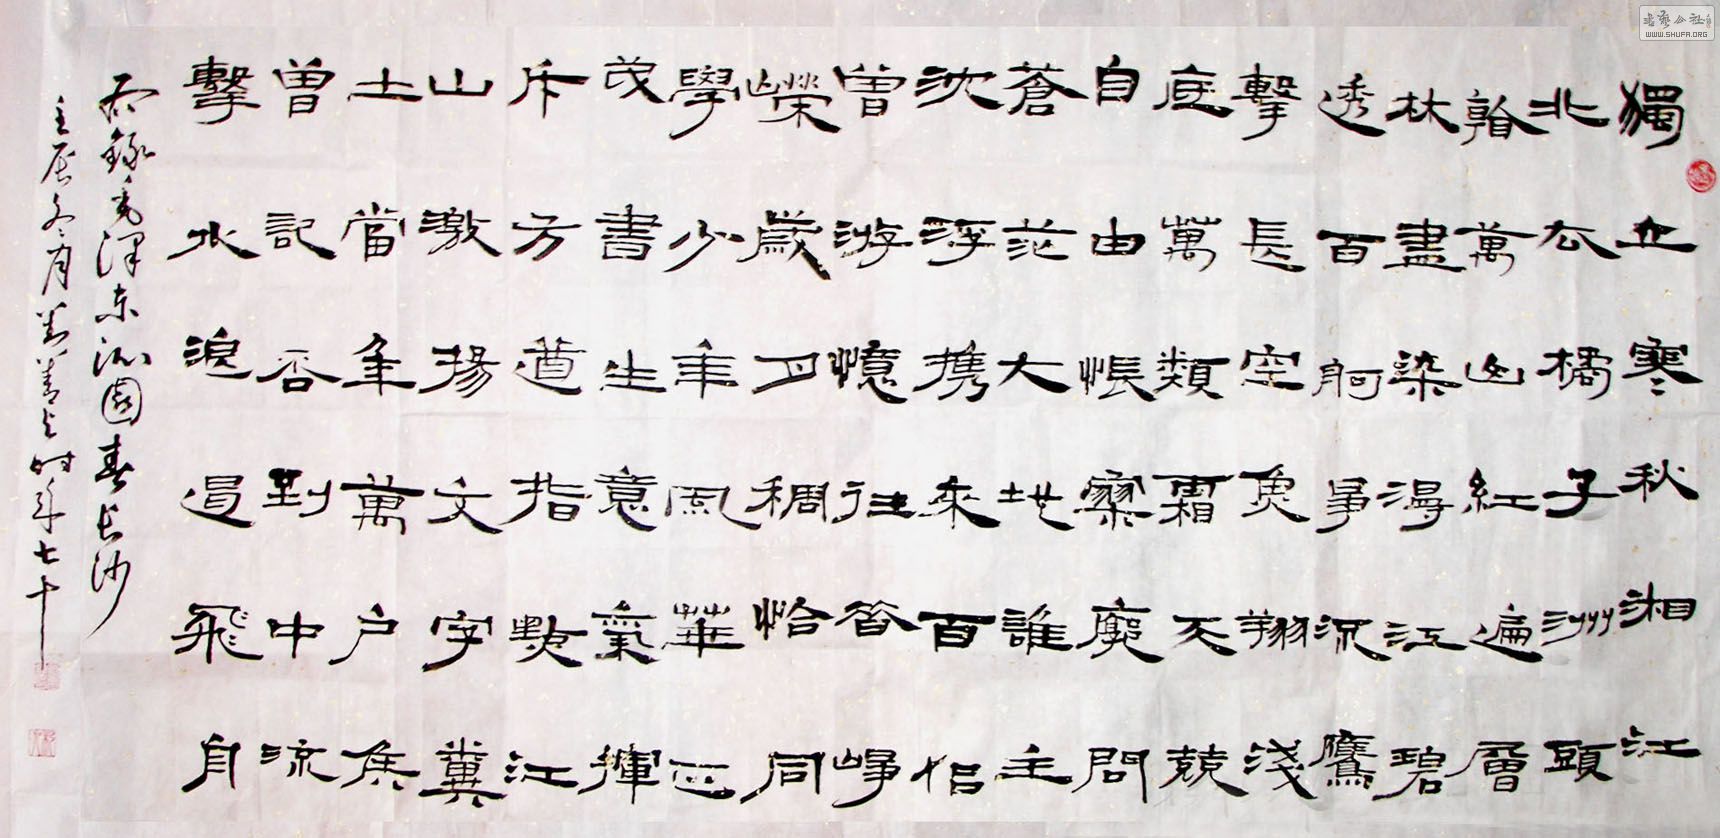 書藝公社
WWW.SHUFA.ORG
獨立寒秋湘江
北去橘子洲頭
看萬山紅遍層
林盡染漫江碧
透百舸爭流鷹
擊長空魚翔淺
底萬類霜天競
自由悵寥廓問
蒼茫大地誰主
沈浮携來百侶
曾游憶往昔崢
嶸歲月稠恰同
學少年風華正
茂書生意氣揮
斥方遒指點江
山激揚文字糞
土當年萬户侯
曾記否到中流
擊水浪遏飛舟
右錄毛澤東沁園春長沙
壬辰冬月書之時年七十